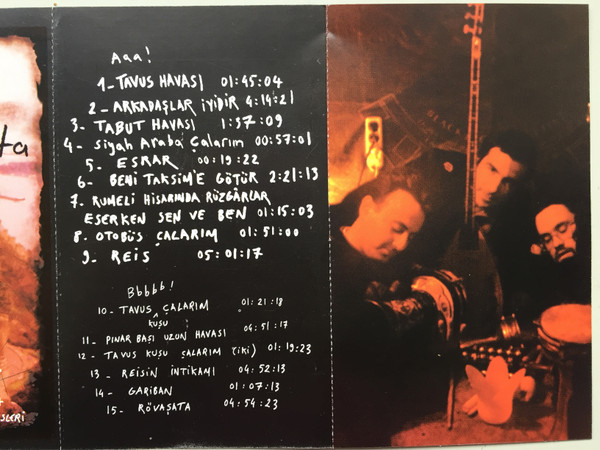 Aaa!
1- TAVUS HAVASI 01:45:04
2- ARKADAŞLAR İYİDİR 4:14:21
3- TABUT HAVASI 1:57:09
4- Siyah Araba Çalarım 00:57:01
5- ESRAR 00:19:22
6- BENİ TAKSİM'E GÖTÜR 2:21:13
7- RUMELİ HİSARINDA RÜZGÂRLAR
ESERKEN SEN VE BEN 01:15:03
8. OTOBÜS ÇALARIM 01:51:00
9- REİS 05:01:17
Bbbbb!
10- TAVUS ÇALARIM 01:21:18
KUŞU
11- PINAR BAŞI UZUN HAVASI 04:51:17
12- TAVUS KUŞU ÇALARIM (İKİ) 01:19:23
13- REİSİN İNTİKAMI 04:52:13
14- GARİBAN 01:07:13
15- RÖVAŞATA 04:54:23
ta
SLERİ